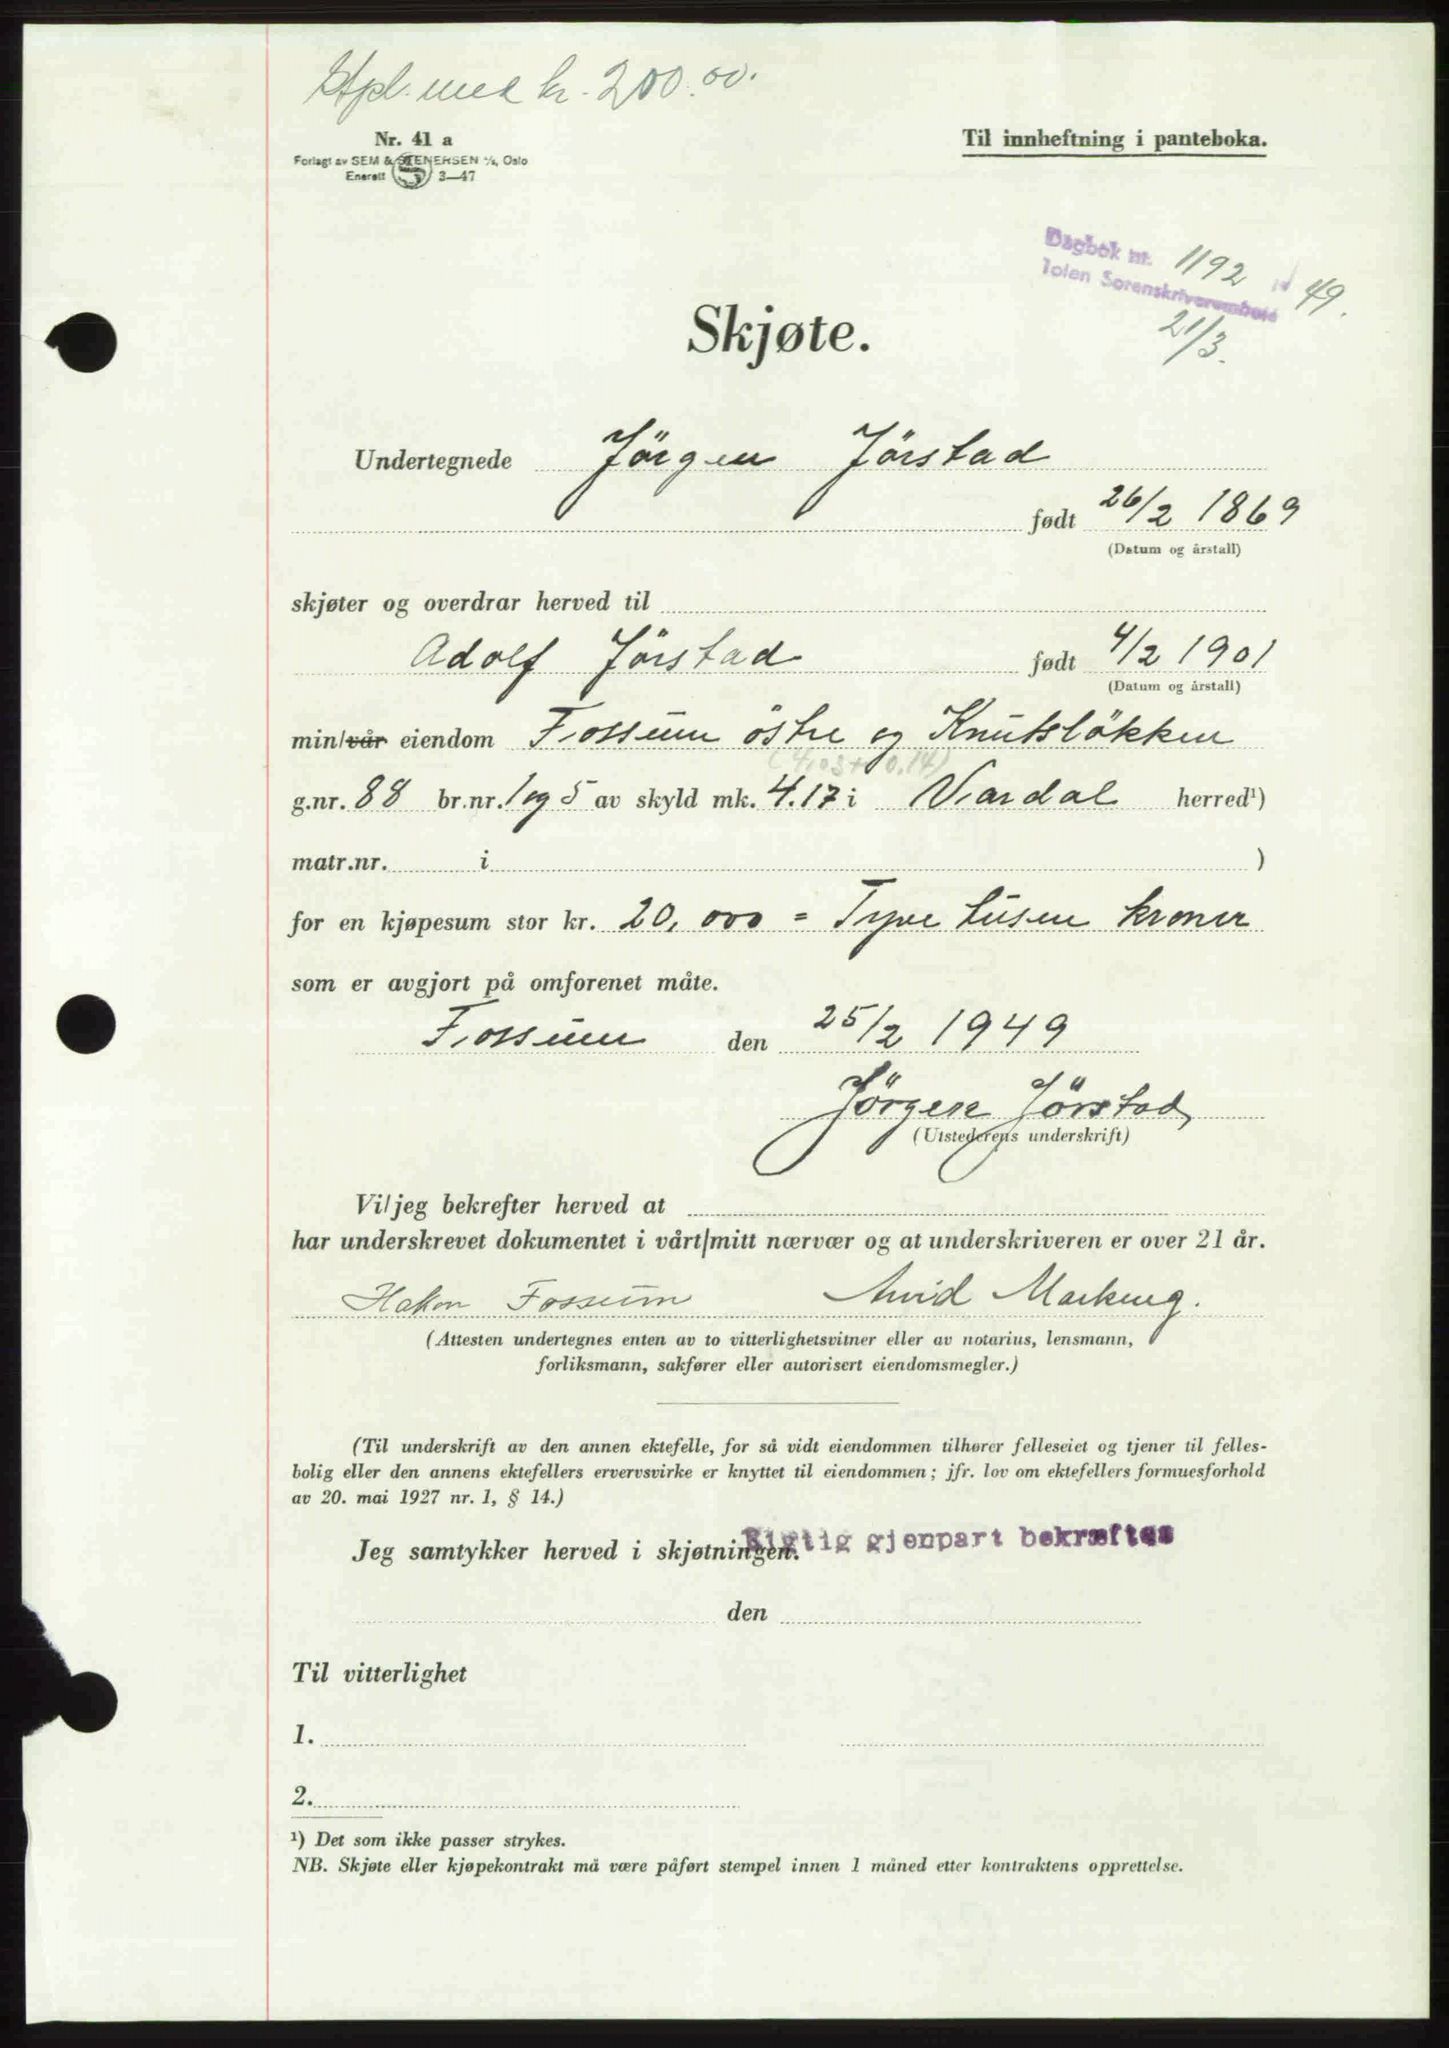 Stpl. med kr. 200.00.
Nr. 41 a
Forlagt av SEM & STENERSEN A/S, Oslo
Enerett 3—47
Til innheftning i panteboka.
Dagbok nr. 1192 19 49.
Toten Sorenskriverembete
21/3.
Skjøte.
Undertegnede Jörgen Jörstad
født 26/2 1869
(Datum og årstall)
skjøter og overdrar herved til
Adolf Jörstad født 4/2 1901
(Datum og årstall)
min/vår eiendom Fossum östre og Knutsløkken
(4,03+0.14)
g.nr. 88 br.nr. 1 og 5 av skyld mk. 4.17 i Vardal herred¹)
matr.nr. i )
for en kjøpesum stor kr. 20,000 = Tyve tusen kroner
som er avgjort på omforenet måte.
Fossum den 25/2 1949
Jörgen Jörstad
(Utstederens underskrift)
Vi/jeg bekrefter herved at
har underskrevet dokumentet i vårt/mitt nærvær og at underskriveren er over 21 år.
Hakon Fossum Arvid Markeng.
(Attesten undertegnes enten av to vitterlighetsvitner eller av notarius, lensmann,
forliksmann, sakfører eller autorisert eiendomsmegler.)
(Til underskrift av den annen ektefelle, for så vidt eiendommen tilhører felleseiet og tjener til felles-
bolig eller den annens ektefellers ervervsvirke er knyttet til eiendommen; jfr. lov om ektefellers formuesforhold
av 20. mai 1927 nr. 1, § 14.)
Rigtig gjenpart bekræftes
Jeg samtykker herved i skjøtningen.
den
Til vitterlighet
1.
2.
¹) Det som ikke passer strykes.
NB. Skjøte eller kjøpekontrakt må være påført stempel innen 1 måned etter kontraktens opprettelse.